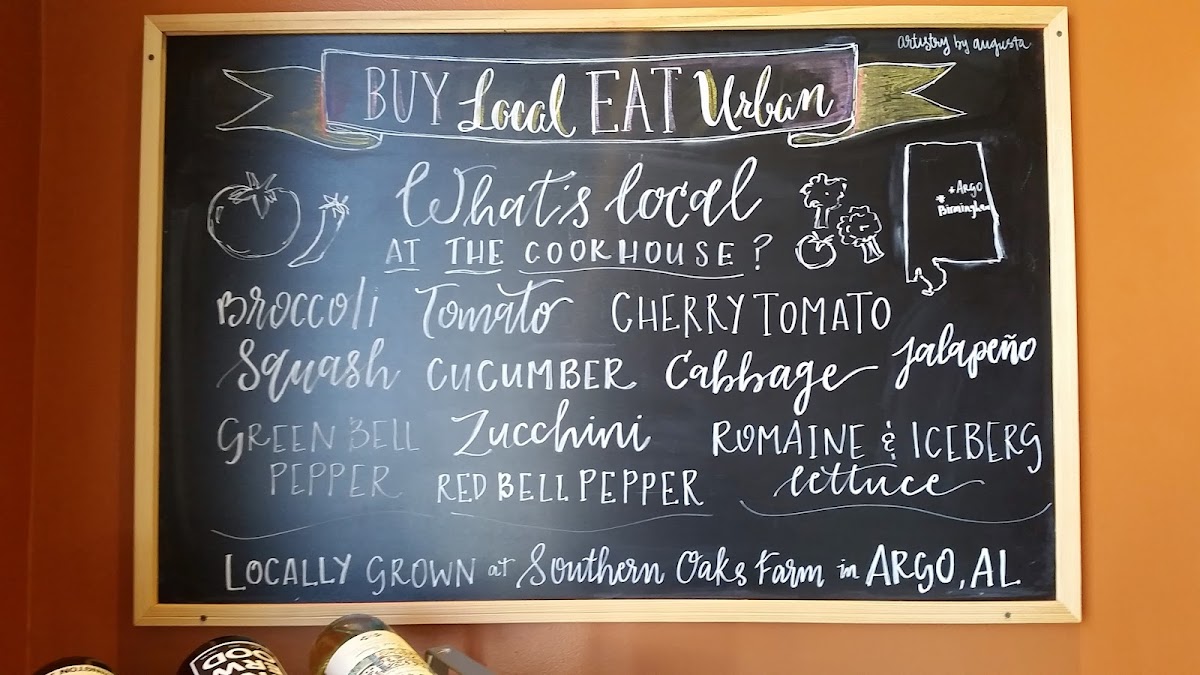 artistry by augusta
BUY Local EAT Urban
What's local
AT THE COOKHOUSE?
ARGO
Birmingham
Broccoli Tomato CHERRY TOMATO
Squash CUCUMBER Cabbage Jalapeño
GREEN BELL PEPPER Zucchini ROMAINE & ICEBERG
RED BELL PEPPER lettuce
LOCALLY GROWN at Southern Oaks Farm in ARGO, AL